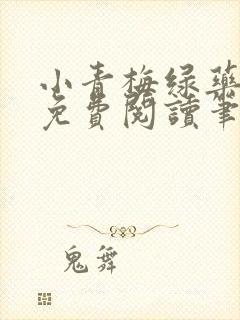 小青梅绿药
免費閱讀筆
鬼舞